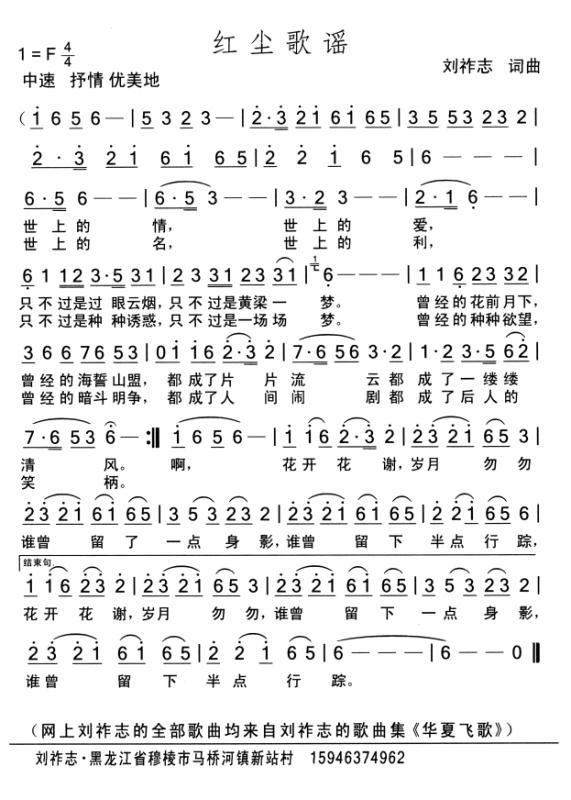 红尘歌谣
1=F 4/4
中速 抒情 优美地
刘祚志 词曲
(1 6 5 6 — | 5 3 2 3 — | 2·3 2 1 6 1 6 5 | 3 5 5 3 2 3 2 |
2 · 3 2 1 6 1 6 5 | 2 2 1 6 5 | 6 — — — |
6·5 6 — — | 6·5 3 — — | 3·2 3 — — | 2·1 6 — — |
世上的 情, 世上的 爱,
世上的 名, 世上的 利,
6 1 1 2 3·5 3 1 | 2 3 3 1 2 3 3 1 | 6 — — — | 1 1 6 2 3 3 2 |
只不过是过 眼云烟,只不过是黄梁一 梦。 曾经的花前月下,
只不过是种 种诱惑,只不过是一场场 梦。 曾经的种种欲望,
3 6 6 7 6 5 3 | 0 1 1 6 2·3 | 7·6 5 6 3·2 | 1·2 3·5 6 2 |
曾经的海誓山盟, 都成了片 片流 云都 成了一缕缕
曾经的暗斗明争, 都成了人 间闹 剧都 成了后人的
7·6 5 3 6 — :‖ 1 6 5 6 — | 1 1 6 2·3 2 | 2 3 2 1 6 5 3 |
清 风。 啊, 花开花 谢,岁月 匆匆
笑 柄。
2 3 2 1 6 1 6 5 | 3 5 3 2 3 2 | 2 3 2 1 6 1 6 5 | 2 2 1 6 5 6 |
谁曾 留了 一点身影,谁曾 留下 半点行踪,
结束句
1 1 6 2 3 2 | 2 3 2 1 6 5 3 | 2 3 2 1 6 1 6 5 | 3 5 3 2 3 2 |
花开花 谢,岁月 匆匆,谁曾 留下 一点身影,
2 3 2 1 6 1 6 5 | 2 2 1 6 5 | 6 — — — | 6 — — 0 ‖
谁曾 留下 半点行 踪。
(网上刘祚志的全部歌曲均来自刘祚志的歌曲集《华夏飞歌》)
刘祚志·黑龙江省穆棱市马桥河镇新站村 15946374962